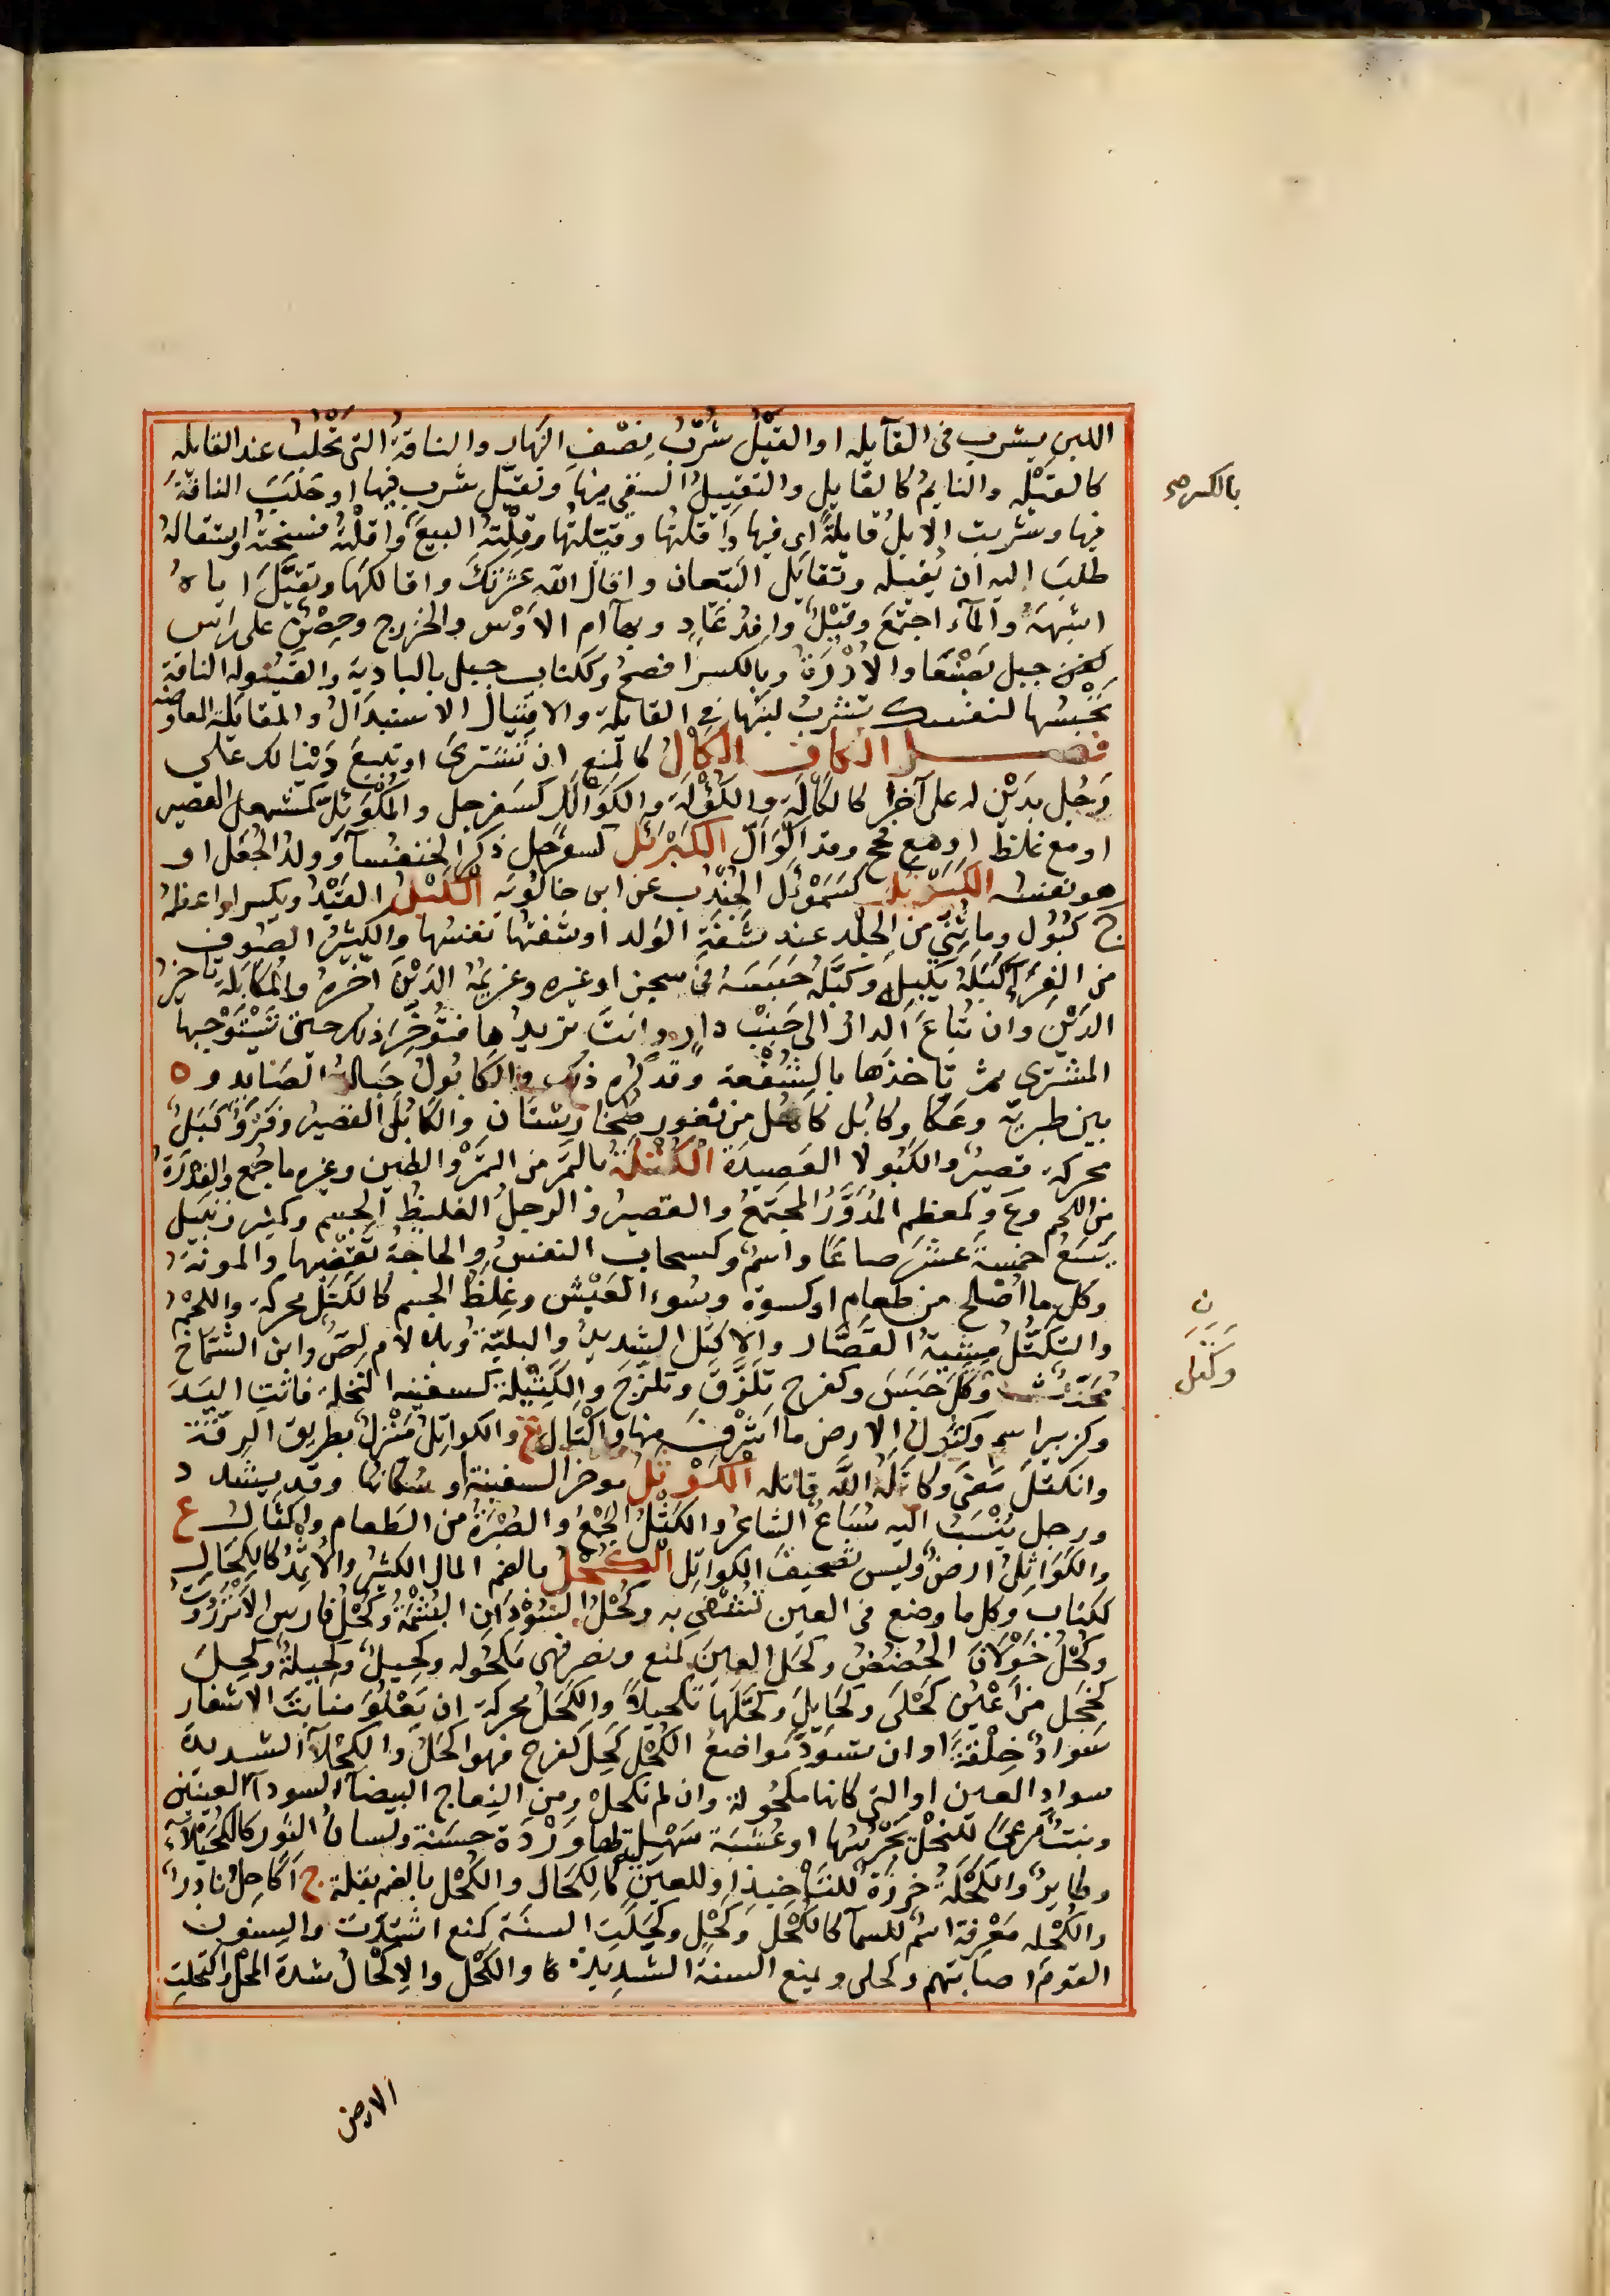 اللبن يشرب فى القآيله او القَيْلُ شُرْبُ نِصْفِ النّهار والناقةُ التى تُحْلَبُ عند القايله
كالقَيْلَهِ والنايمُ كالقايل والتَقيِيلُ السَقْي فيها وتقيّل شرب فيها او حَلَبَ الناقةَ
فيها وشربت الابلُ قايلةً اى فيها واَقلتُها وقيّلتُها وقِلْتهُ البيعَ واَقَلْتُه فسختهُ واستقالهُ
طلبَ اليه ان يُقيله وتَقايَل البَيّعان واقالَ اللّه عَثْرَتَكَ واقالكَها وتقيَّلَ اباهُ
اشبَههُ والمآء اجتمعَ وقَيْلٌ وافِدُ عَادٍ وبهآ ام الاَوْس والخزرج وحِصْنٌ على راس
كَنِن جبل بصَنْعَا والاُدْرَةُ وبالكسر افصح وككتاب جبل بالبادية والقَيُوله الناقة
تَحْبِسُها لنفسك تشربُ لبنَها فى القايلة والاقتيال الاستبدَالُ والمقايلة المعاوضه
فصل الكاف الكأْلُ كالمنع ان تشترىَ او تبيعَ دَيْنًا لك على
رَجُل بِدَيْن له على آخر كالكَألَةِ والكُؤلَة والكَوَأللُ كسَفرجل والمُكْوَئِلُّ كمشمعل القصير
او مع غلظ او مع فحج وقد اكْوَأَلّ الكَبَرْتَل كسفرجل ذكر الخنفسآ وولدُ الجُعَل او
هو نفسه الكَبَرْتَل كسَمَوْءَل الجُنْدُب عن ابن خالويه الكَبْلُ القَيْدُ ويكسر او اعظمهُ
ج كُبُول وما ثُنِيَ من الجلد عند شَفَةِ الدلو او شفتها نفسُها والكثيرُ الصوف
من الفِرَآء كبَلَهُ يَكْبِلُه وكبَّلَهُ حَبَسَهُ فى سجن او غيره وغريمَهُ الدَيْنَ اخّره والمُكابَلة تاخيرُ
الدَيْن وان تُباعَ الدار الى جَنْب دارٍ وانتَ تريدها فتُؤخِّرَ ذلك حتى يَسْتَوْجِبها
المشترى ثم تاخذَها بالشُفْعة وقد كُرِه ذلك والكابُولُ حبالةُ الصايد و ة
بين طبرية وعَكا وكابُل كآمُل من ثغور طُخَارِستان والكَابُلىّ القصيرُ وفَرْوٌ كَبَلٌ
محركة قصيرٌ والكَبُولاَ العَصِيدَة الكُتْلَةُ بالضم من التَمْر والطين وغيره ما جُمع والفِدْرَةُ
من اللحم و ع وكمعظم المُدَوَّرُ المجتمعُ والقصيرُ والرجل الغليظُ الجسم وكمنبر زَبيل
يَسَعُ خمسةَ عشرَ صاعًا واسمٌ وكسحاب النفسُ والحاجةُ تقضيها والمونةُ
وكل ما اُصْلح من طعامٍ او كسوة وسُوء العَيْش وغِلَظُ الجسم كالكَتَل محركة واللحمُ
والتكتّل مِشيةُ القصّار والاكتل الشديدُ والبليّةُ وبلا لام لِصٌ وابن الشمّاخ
مُحدِّث وكتَل حَبَسَ وكفرح تلزّقَ وتلزّجَ والكَتِيْلة كسفينه النخلة فاتت اليدَ
وكزبير اسم وكتُول الارض ما اشرف منها واكْتال ع والكواتِلُ مَنْزِل بطريق الرقّة
وانكتَلَ مَضَى وكاتَلَهُ اللّه قاتله الكَوْثَلُ موخر السفينة او سُكّانها وقد يشدد
ورجل يُنْسَبُ اليه سِبَاعٌ الشاعرُ والكَثْلُ الجَمْعُ والصُبْرَةُ من الطَعام واكثال ع
والكَوَاثِلُ ارضٌ وليس تصحيف الكواتل الكُحْلُ بالضم المال الكثيرُ والاثمِدُ كالكِحَال
ككتاب وكل ما وضع فى العين يُشتفَى به وكُحْلُ السُوْدَان البُشْمَةُ وكُحْلُ فارس الاَنْزَرُوتُ
وكُحْلُ خَوْلاَنَ الحُضَضُ وكحَل العينَ كمنع ونصر فهى مكحُوله وكحِيلٌ وكحِيلةٌ وكحِلٌ
كخجل من اَعْيُن كَحْلَى وكحَايِلَ وكحّلَها تكحِيلًا والكَحَلُ محركة ان يَعْلُوَ منابتَ الاشفار
سوادٌ خِلْقةً او ان تسوَدّ مَواضعُ الكُحْل كَحِل كفرح فهو اكحَلُ والكحْلآ الشديدة
سواد العين او التى كانها مكحُولة وان لم تكحل ومن النعاج البيضآ السودآ العينين
ونبتٌ مرعىً للنحْل تجْرُسُها او عُشبة سَهْلِيّة لها وَرْدَة حسَنة ولسان الثور كالكُحَيْلآء
وطايرٌ والكَحْلةُ خرزَة للتأخِيذ او للعين كالكِحَال والكُحْل بالضم بقلة ج اَكاحِلُ نادرٌ
والكَحْله مَعْرِفة اسْم للسمآ كالكَحْل وكَحْل وكحَلَتِ السنة كمنع اشتدّت والسِنون
القومَ اصابتهم وكحلى ويمنع السنة الشديدة كا والكَحْل والاِكحْالُ شدة المحْل واكتحلت
بالكسر صح
ن
وكتل
الارض